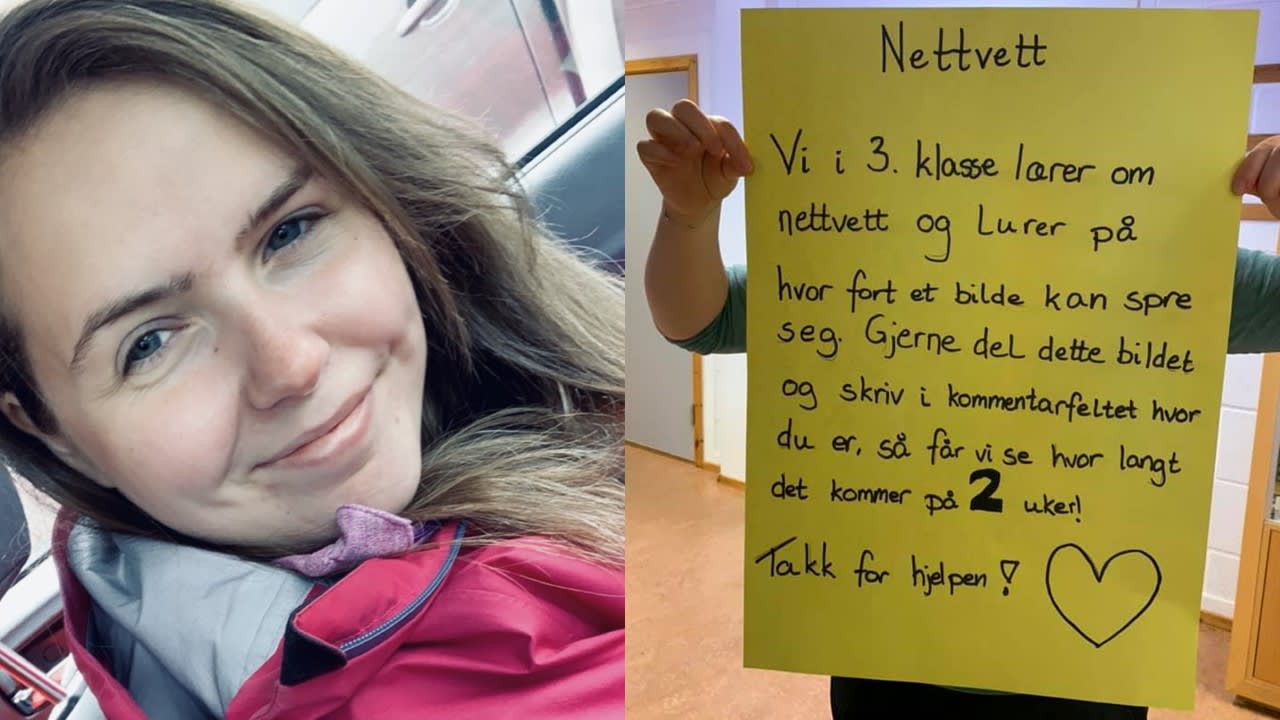 Nettvett
Vi i 3. klasse lærer om
nettvett og Lurer på
hvor fort et bilde kan spre
seg. Gjerne del dette bildet
og skriv i kommentarfeltet hvor
du er, så får vi se hvor langt
det kommer på 2 uker!
Takk for hjelpen!